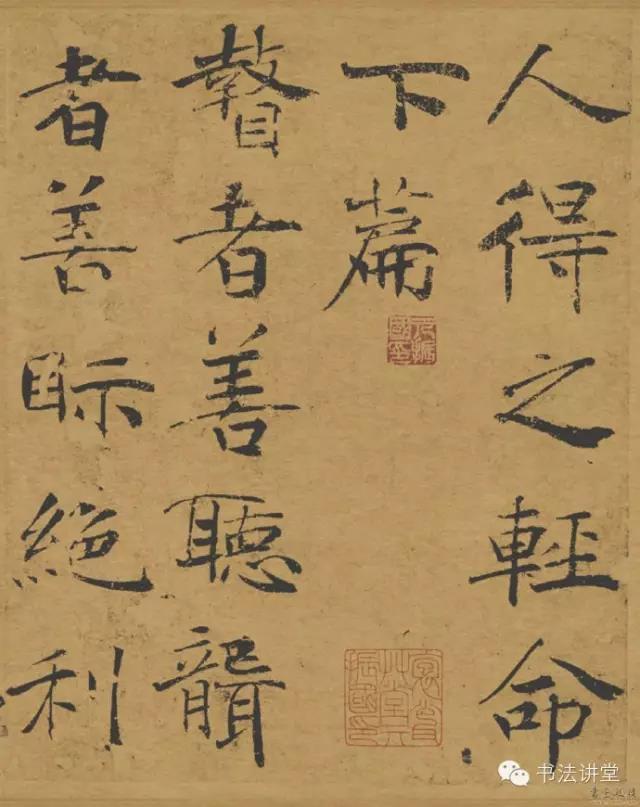 人得之輕命
下篇
瞽者善聽聾
者善眎絕利
书法讲堂